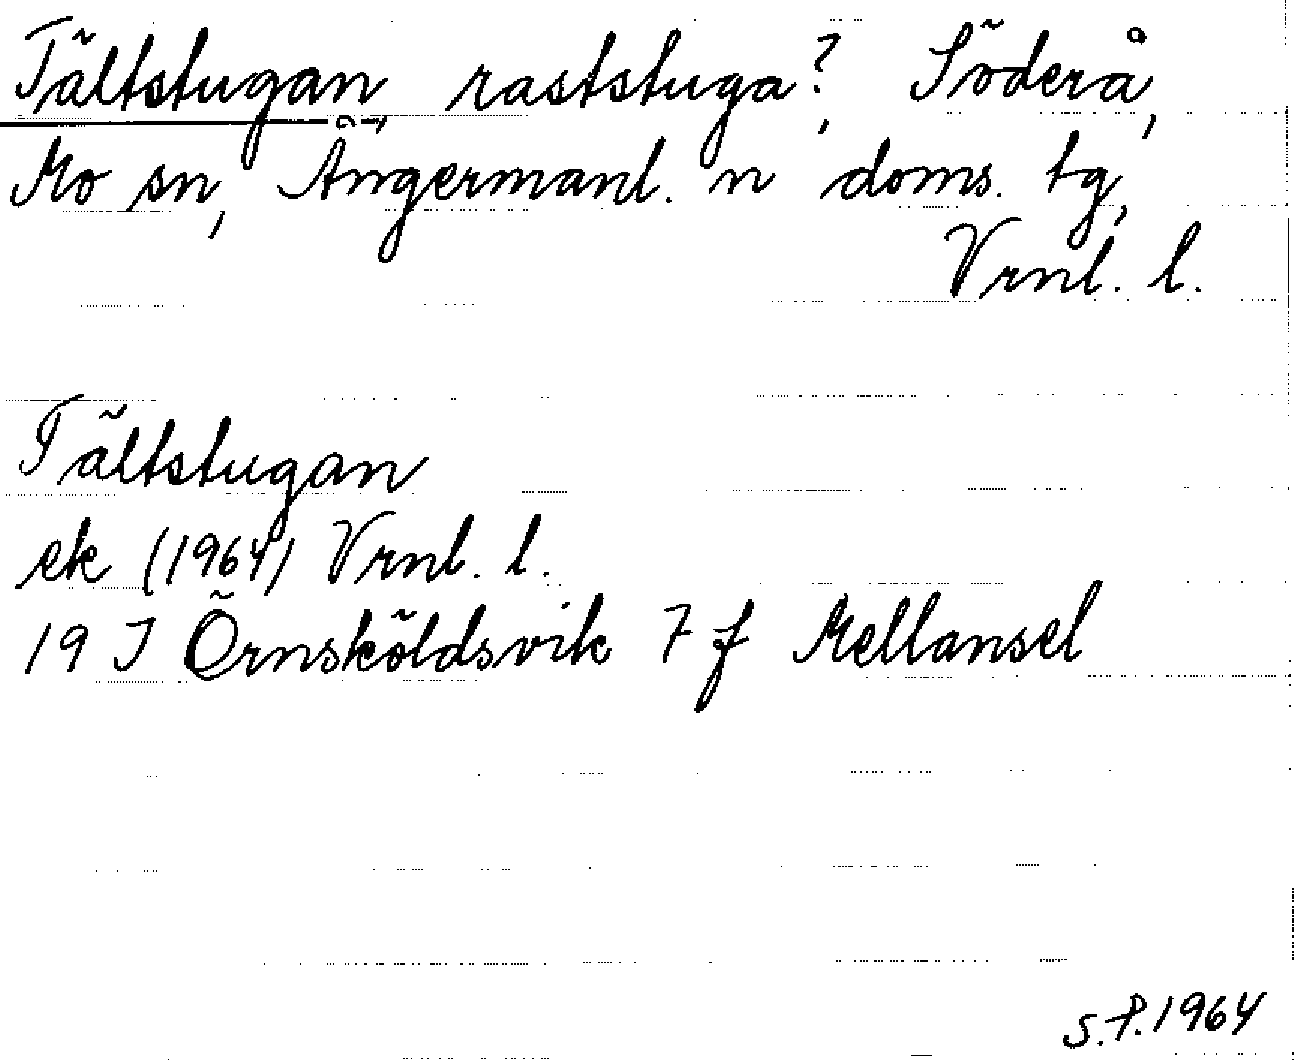 Tältstugan, raststuga?, Söderå,
Mo sn, Ångermanl. n doms. tg,
Vrnl. l.
Tältstugan
ek (1964) Vrnl. l.
19 I Örnsköldsvik 7 f Mellansel
S.P. 1964